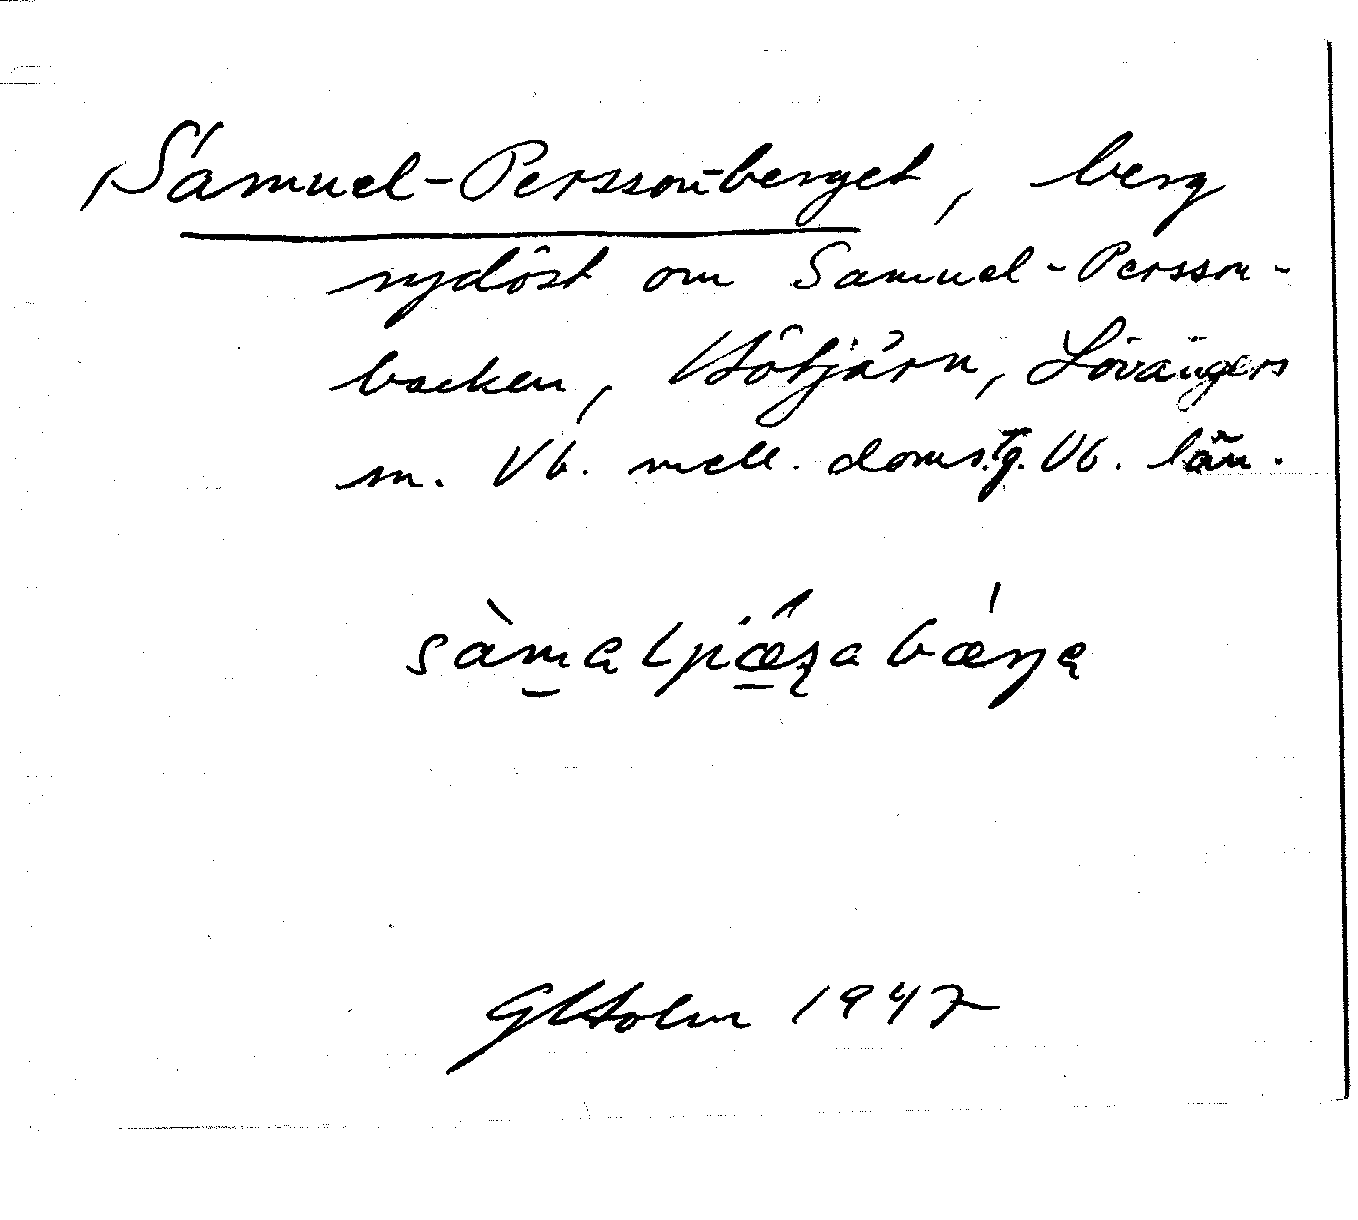 Samuel-Perssonberget, berg
sydöst om Samuel-Persson-
backen, Hötjärn, Lövångers
sn. Vb. mell. doms.tg. Vb. län.
GHolm 1947